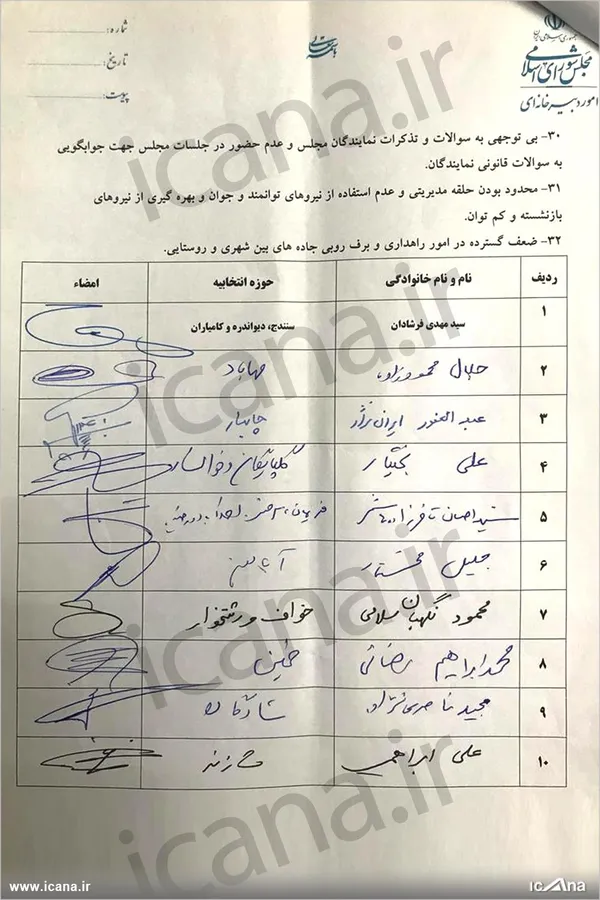 جمهوری اسلامی ایران
مجلس شورای اسلامی
امور دبیرخانه‌ای
باسمه تعالی
شماره:
تاریخ:
پیوست:
۳۰- بی توجهی به سوالات و تذکرات نمایندگان مجلس و عدم حضور در جلسات مجلس جهت جوابگویی
به سوالات قانونی نمایندگان.
۳۱- محدود بودن حلقه مدیریتی و عدم استفاده از نیروهای توانمند و جوان و بهره گیری از نیروهای
بازنشسته و کم توان.
۳۲- ضعف گسترده در امور راهداری و برف روبی جاده های بین شهری و روستایی.
ردیف نام و نام خانوادگی حوزه انتخابیه امضاء
۱ سید مهدی فرشادان سنندج، دیواندره و کامیاران
۲ جلال محمودزاده مهاباد
۳ عبدالغفور ایران نژاد چابهار
۴ علی بختیار گلپایگان و خوانسار
۵ سید احسان فریمان، سرخس
۶ جلیل مختار آبادان
۷ محمود نگهبان سلامی خواف و رشتخوار
۸ محمدابراهیم رضائی خمین
۹ مجید ناصری نژاد شادگان
۱۰ علی ابراهیمی شازند
icana.ir
icana.ir
icana.ir
icana.ir
www.icana.ir
icana